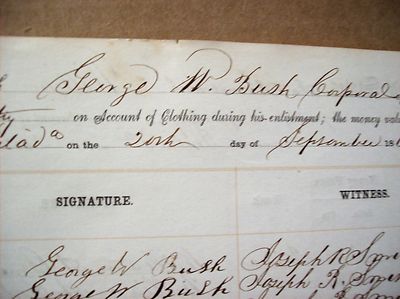 George W. Bush Corporal
on Account of Clothing during his enlistment; the money
on the 20th day of September 18
SIGNATURE. WITNESS.
George W Bush Joseph R.
George W Bush Joseph R.